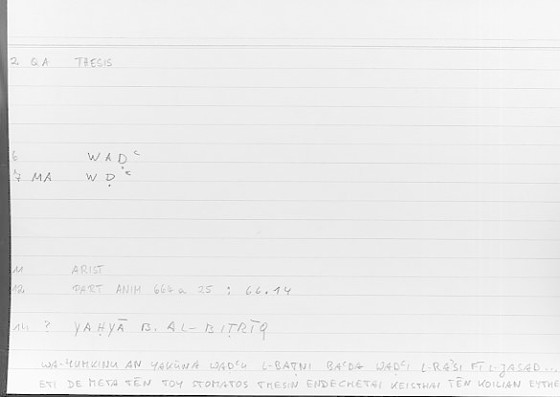 2 QA THESIS
6 WAḌʿ
7 MA WḌʿ
11 ARIST
12 PART ANIM 664 a 25 : 66.14
14 ? YAḤYĀ B. AL-BIṬRĪQ
WA-YUMKINU AN YAKŪNA WAḌʿU L-BAṬNI BAʿDA WAḌʿI L-RAʾSI FĪ L-JASAD...
ETI DE META TĒN TOY STOMATOS THESIN ENDECHETAI KEISTHAI TĒN KOILIAN EYTHE